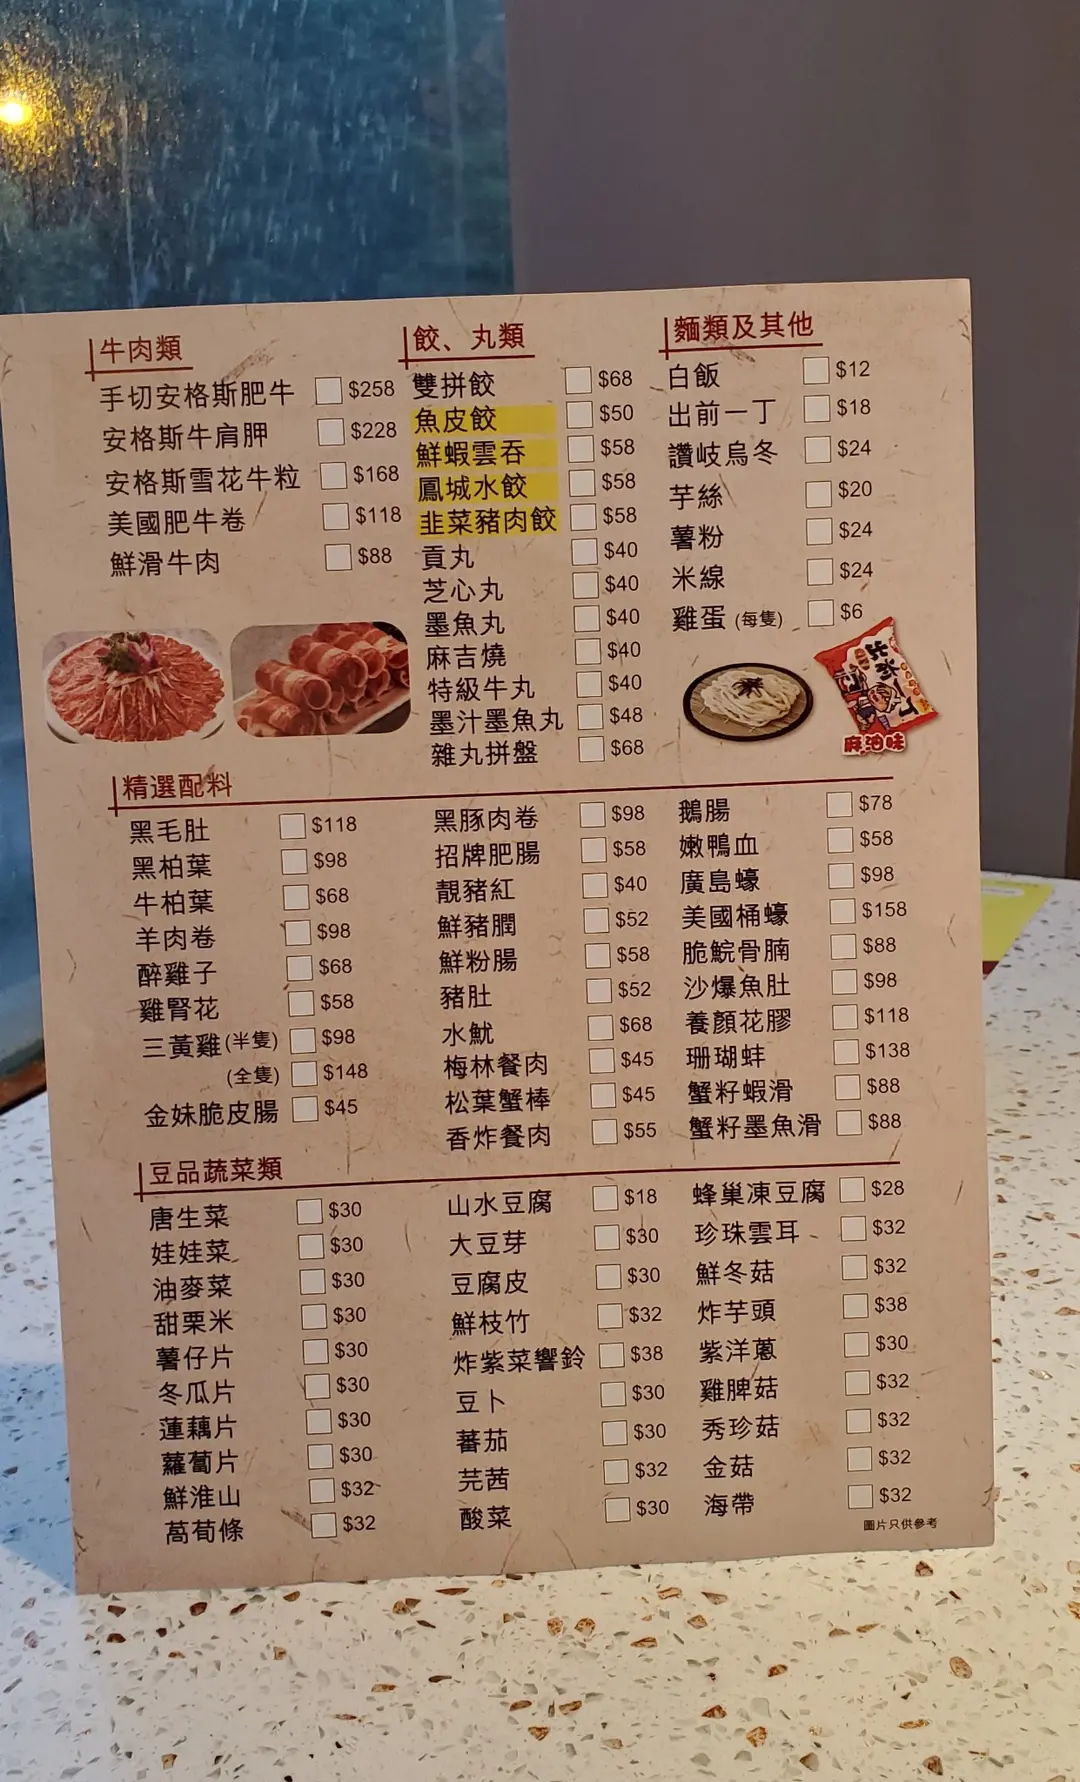 牛肉類
手切安格斯肥牛 $258
安格斯牛肩胛 $228
安格斯雪花牛粒 $168
美國肥牛卷 $118
鮮滑牛肉 $88
餃、丸類
雙拼餃 $68
魚皮餃 $50
鮮蝦雲吞 $58
鳳城水餃 $58
韭菜豬肉餃 $58
貢丸 $40
芝心丸 $40
墨魚丸 $40
麻吉燒 $40
特級牛丸 $40
墨汁墨魚丸 $48
雜丸拼盤 $68
麵類及其他
白飯 $12
出前一丁 $18
讚岐烏冬 $24
芋絲 $20
薯粉 $24
米線 $24
雞蛋 (每隻) $6
麻油味
精選配料
黑毛肚 $118
黑柏葉 $98
牛柏葉 $68
羊肉卷 $98
醉雞子 $68
雞腎花 $58
三黃雞 (半隻) $98
(全隻) $148
金妹脆皮腸 $45
黑豚肉卷 $98
招牌肥腸 $58
靚豬紅 $40
鮮豬膶 $52
鮮粉腸 $58
豬肚 $52
水魷 $68
梅林餐肉 $45
松葉蟹棒 $45
香炸餐肉 $55
鵝腸 $78
嫩鴨血 $58
廣島蠔 $98
美國桶蠔 $158
脆鯇骨腩 $88
沙爆魚肚 $98
養顏花膠 $118
珊瑚蚌 $138
蟹籽蝦滑 $88
蟹籽墨魚滑 $88
豆品蔬菜類
唐生菜 $30
娃娃菜 $30
油麥菜 $30
甜栗米 $30
薯仔片 $30
冬瓜片 $30
蓮藕片 $30
蘿蔔片 $30
鮮淮山 $32
萵荀條 $32
山水豆腐 $18
大豆芽 $30
豆腐皮 $30
鮮枝竹 $32
炸紫菜響鈴 $38
豆卜 $30
蕃茄 $30
芫茜 $32
酸菜 $30
蜂巢凍豆腐 $28
珍珠雲耳 $32
鮮冬菇 $32
炸芋頭 $38
紫洋蔥 $30
雞脾菇 $32
秀珍菇 $32
金菇 $32
海帶 $32
圖片只供參考